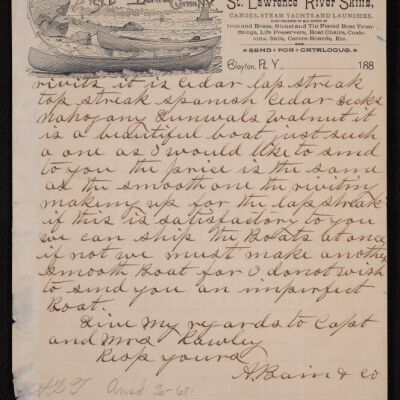 CLAYTON, N.Y.
St. Lawrence River Skiffs,
CANOES, STEAM YACHTS AND LAUNCHES.
Iron and Brass, Nickel and Tin Plated Boat Trim-
mings, Life Preservers, Boat Chairs, Cush-
ions, Sails, Centre-Boards, Etc.
SEND FOR CATALOGUE.
Clayton, N. Y., 188
rivits it is cedar lap streak
top streak spanish cedar decks
Mahogany Gunwals walnut it
is a beautiful boat just such
a one as I would like to send
to you the price is the same
as the smooth one the riviting
making up for the lap streak
if this is satisfactory to you
we can ship the Boats at once
if not we must make another
smooth Boat for I do not wish
to send you an imperfect
Boat.
Give my regards to Capt
and Mrs Rawley
Resp yours
A. Bain & Co